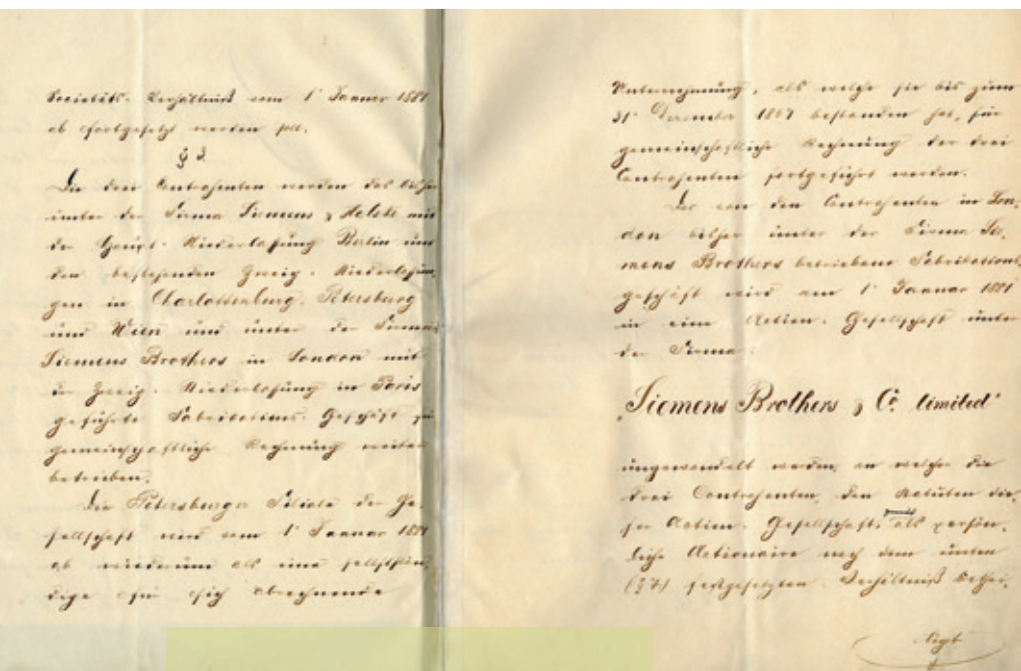 Societäts-Verhältniß vom 1t Januar 1881
ab fortgesetzt werden soll.
§ 3
Die drei Contrahenten werden das bisher
unter der Firma Siemens & Halske mit
der Haupt-Niederlassung Berlin und
den bestehenden Zweig-Niederlassun¬
gen in Charlottenburg, Petersburg
und Wien und unter der Firma
Siemens Brothers in London mit
der Zweig-Niederlassung in Paris
geführte Fabrikations-Geschäft für
gemeinschaftliche Rechnung weiter
betreiben.
Die Petersburger Filiale der Ge¬
sellschaft wird vom 1t Januar 1881
ab wiederum als eine selbststän¬
dige für sich abrechnende
Unternehmung, als welche sie bis zum
31t Dezember 1867 bestanden hat, für
gemeinschaftliche Rechnung der drei
Contrahenten fortgeführt werden.
Das von den Contrahenten in Lon¬
don bisher unter der Firma Sie¬
mens Brothers betriebene Fabrikations¬
geschäft wird am 1t Januar 1881
in eine Actien-Gesellschaft unter
der Firma:
„Siemens Brothers & Co. limited“
umgewandelt werden, an welcher die
drei Contrahenten, den Statuten die¬
ser Actien-Gesellschaft gemäß, als persön¬
liche Actionaire nach dem unten
(§ 7) festgesetzten Verhältniß bethei¬
ligt